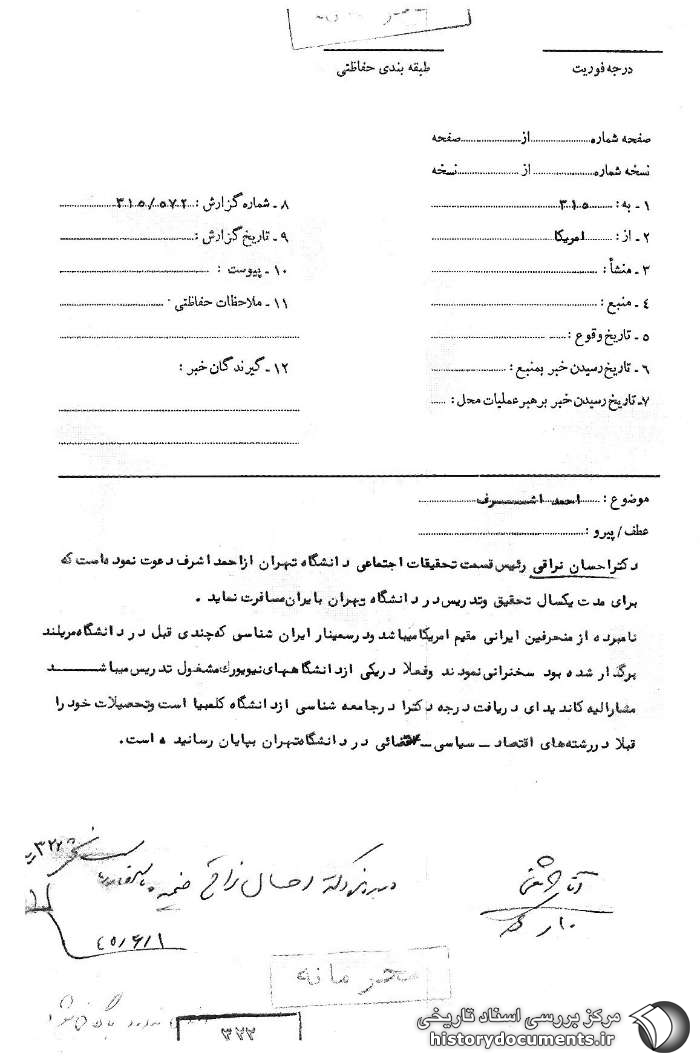 محرمانه
درجه فوریت
طبقه بندی حفاظتی
صفحه شماره از صفحه
نسخه شماره از نسخه
۱ - به : ۳۱۵
۲ - از : امریکا
۳ - منشأ :
۴ - منبع :
۵ - تاریخ وقوع :
۶ - تاریخ رسیدن خبر بمنبع :
۷- تاریخ رسیدن خبر برهبر عملیات محل :
۸ - شماره گزارش : ۳۱۵/۵۷۲
۹ - تاریخ گزارش :
۱۰ - پیوست :
۱۱ - ملاحظات حفاظتی
۱۲ - گیرندگان خبر :
موضوع : احمد اشرف
عطف / پیرو :
دکتر احسان نراقی رئیس قسمت تحقیقات اجتماعی دانشگاه تهران ازاحمد اشرف دعوت نموده است که
برای مدت یکسال تحقیق وتدریس در دانشگاه تهران بایران مسافرت نماید .
نامبرده از منحرفین ایرانی مقیم امریکا میباشد ودرسمینار ایران شناسی که چندی قبل در دانشگاه مریلند
برگذار شده بود سخنرانی نمودند وفعلا دریکی ازدانشگاههای نیویورک مشغول تدریس میباشد
مشارالیه کاندیدای دریافت درجه دکترا درجامعه شناسی ازدانشگاه کلمبیا است وتحصیلات خود را
قبلا دررشته‌های اقتصاد ـ سیاسی ـ قضائی در دانشگاه تهران بپایان رسانیده است.
۳۲۲
دکتر احسان نراقی ضمیمه
۴۵/۶/۱
محرمانه
۳۲۲
مرکز بررسی اسناد تاریخی
historydocuments.ir